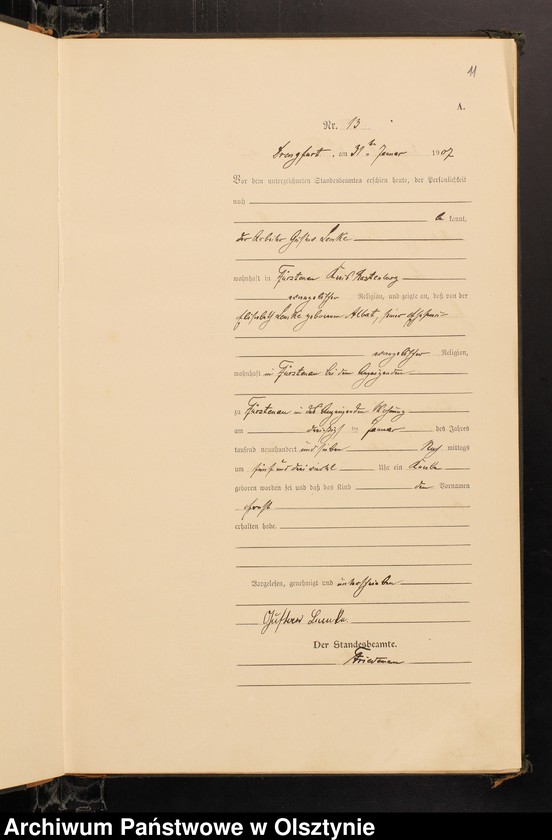 11
A.
Nr. 13
Drengfurt, am 31ten Januar 1907
Vor dem unterzeichneten Standesbeamten erschien heute, der Persönlichkeit
nach
bekannt,
der Arbeiter Gustav Lemke
wohnhaft in Fürstenau Kreis Rastenburg
evangelischer Religion, und zeigte an, daß von der
Elisabeth Lemke geborenen Albat, seiner Ehefrau
evangelischer Religion,
wohnhaft in Fürstenau bei dem Anzeigenden
zu Fürstenau in des Anzeigenden Wohnung
am dreißigsten Januar des Jahres
tausend neunhundert und sieben Nachmittags
um fünf und drei viertel Uhr ein Knabe
geboren worden sei und daß das Kind den Vornamen
erhalten habe.
Vorgelesen, genehmigt und unterschrieben
Gustav Lemke.
Der Standesbeamte.
Archiwum Państwowe w Olsztynie